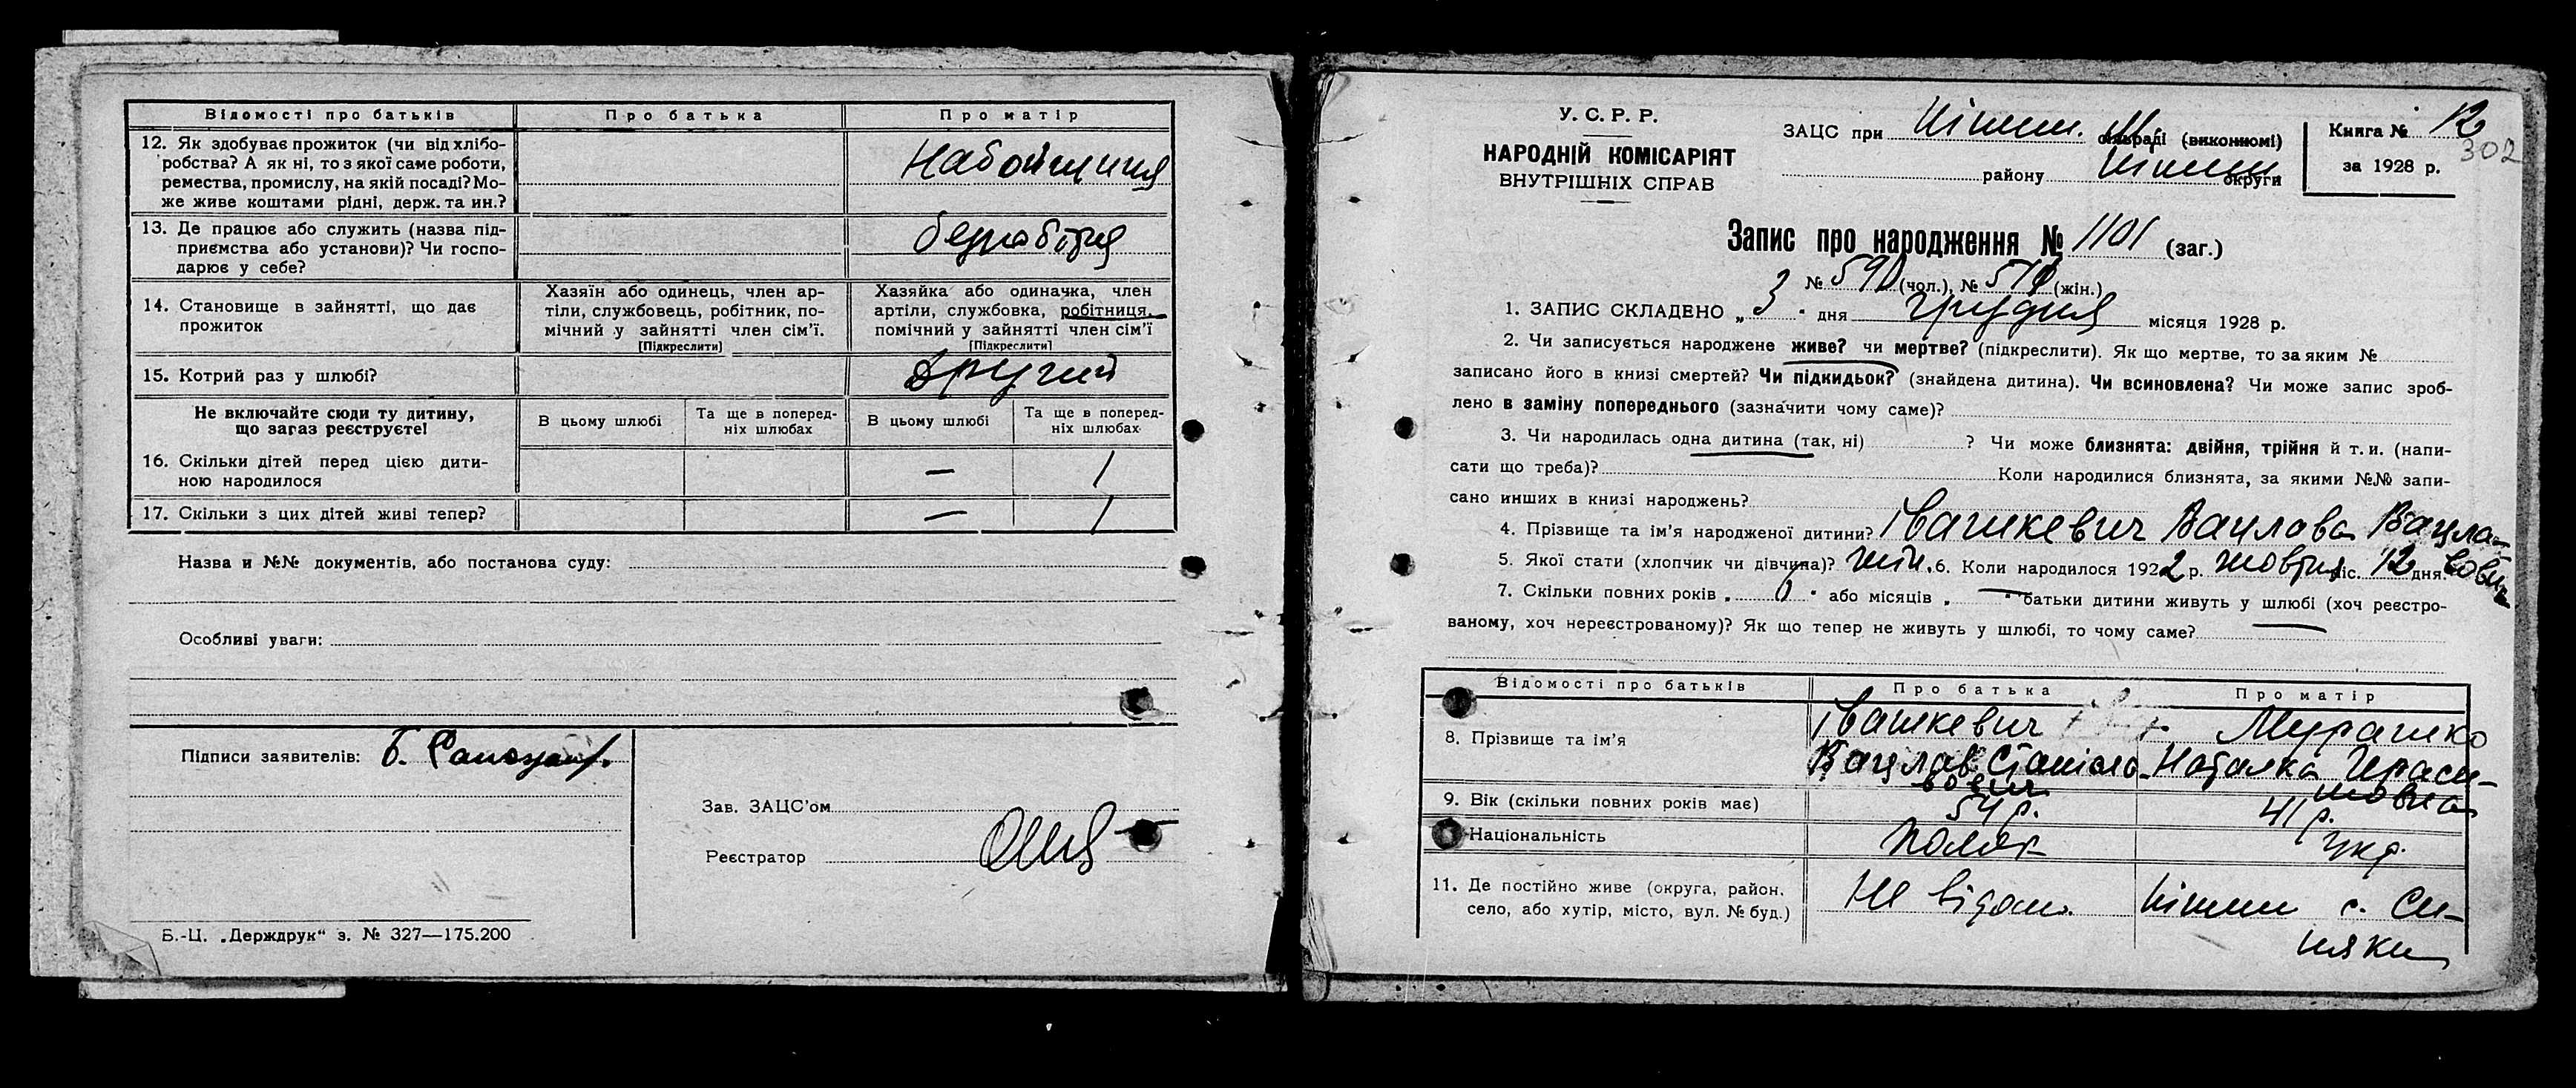 Відомості про батьків
Про батька
Про матір
12. Як здобуває прожиток (чи від хлібо-
робства? А як ні, то з якої саме роботи,
ремества, промислу, на якій посаді? Мо-
же живе коштами рідні, держ. та ин.?
Набойщиця
13. Де працює або служить (назва під-
приємства або установи)? Чи госпо-
дарює у себе?
безробітня
14. Становище в зайнятті, що дає
прожиток
Хазяїн або одинець, член ар-
тіли, службовець, робітник, по-
мічний у зайнятті член сім’ї.
[Підкреслити]
Хазяйка або одиначка, член
артіли, службовка, робітниця,
помічний у зайнятті член сім’ї
[Підкреслити]
15. Котрий раз у шлюбі?
Другий
Не включайте сюди ту дитину,
що загаз реєструєте!
В цьому шлюбі
Та ще в поперед-
ніх шлюбах
В цьому шлюбі
Та ще в поперед-
ніх шлюбах
16. Скільки дітей перед цією дити-
ною народилося
— 1
17. Скільки з цих дітей живі тепер?
— 1
Назва и №№ документів, або постанова суду:
Особливі уваги:
Підписи заявителів: Б.
Зав. ЗАЦС’ом
Реєстратор
Б.-Ц. „Держдрук“ з. № 327—175.200
У. С. Р. Р.
НАРОДНІЙ КОМІСАРІЯТ
ВНУТРІШНІХ СПРАВ
ЗАЦС при Ніжин. М. сільраді (виконкомі)
району Ніжин округи
Книга № 12
302
за 1928 р.
Запис про народження № 1101 (заг.)
№ 590 (чол.), № 511 (жін.)
1. ЗАПИС СКЛАДЕНО „ 3 “ дня грудня місяця 1928 р.
2. Чи записується народжене живе? чи мертве? (підкреслити). Як що мертве, то за яким №
записано його в книзі смертей? Чи підкидьок? (знайдена дитина). Чи всиновлена? Чи може запис зроб-
лено в заміну попереднього (зазначити чому саме)?
3. Чи народилась одна дитина (так, ні) ? Чи може близнята: двійня, трійня й т. и. (напи-
сати що треба)? Коли народилися близнята, за якими №№ запи-
сано инших в книзі народжень?
4. Прізвище та ім’я народженої дитини? Івашкевич Вацлава Вацла-
вовн
5. Якої стати (хлопчик чи дівчина)? жін. 6. Коли народилося 1922 р. жовтня міс. 12 дня.
7. Скільки повних років „ 6 “ або місяців „ — “ батьки дитини живуть у шлюбі (хоч реєстро-
ваному, хоч нереєстрованому)? Як що тепер не живуть у шлюбі, то чому саме?
Відомості про батьків
Про батька
Про матір
8. Прізвище та ім’я
Івашкевич
Вацлав Станісла-
вович
Мурашко
Наталка Гераси-
мовна
9. Вік (скільки повних років має)
54 р.
41 р.
Національність
поляк
укр.
11. Де постійно живе (округа, район,
село, або хутір, місто, вул. № буд.)
Не відом.
Ніжин с. Си-
няки